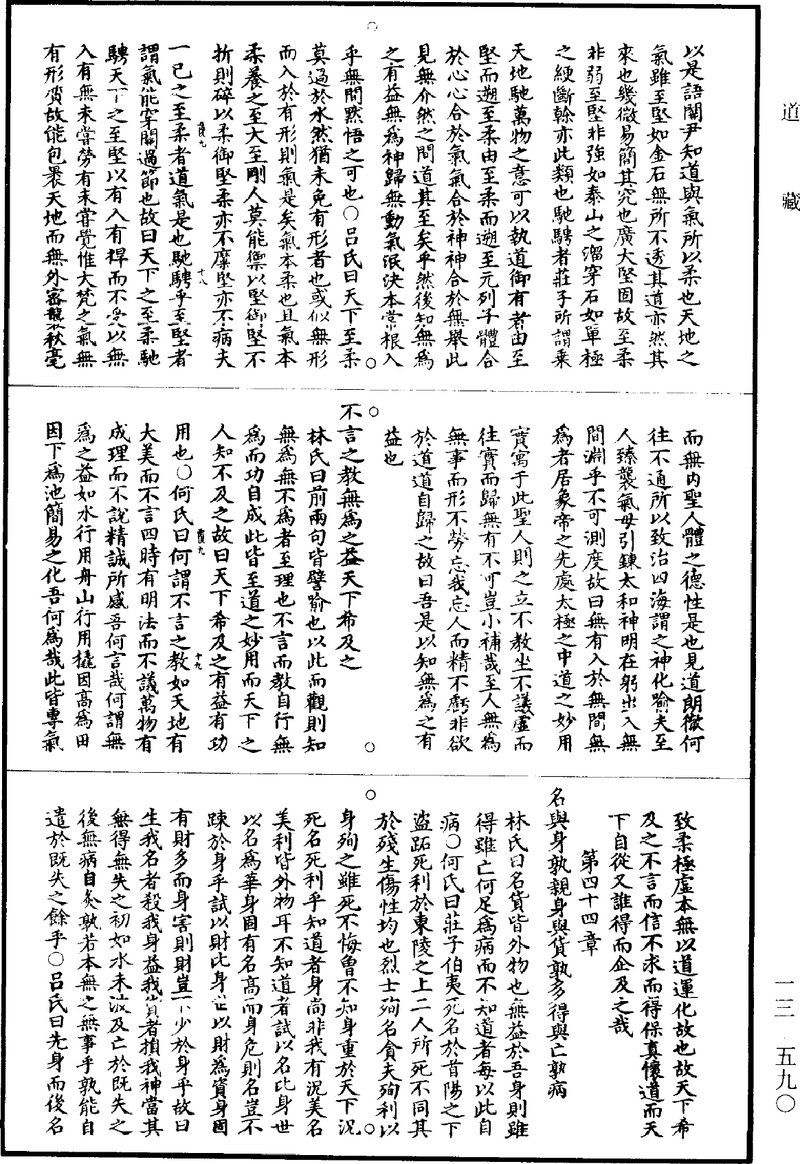 道藏
一三 五九〇
以是語關尹知道與氣所以柔也天地之
氣雖至堅如金石無所不透其道亦然其
來也幾微易簡其究也廣大堅固故至柔
非弱至堅非強如泰山之溜穿石如單極
之綆斷榦亦此類也馳騁者莊子所謂乘
天地馳萬物之意可以執道御有者由至
堅而遡至柔由至柔而遡至元列子體合
於心心合於氣氣合於神神合於無舉此
見無介然之間道其至矣乎然後知無為
之有益無為神歸無動氣泯泱本常根入
乎無間黙悟之可也○呂氏曰天下至柔
莫過於水然猶未免有形者也或似無形
而入於有形則氣是矣氣本柔也且氣本
柔養之至大至剛人莫能禦以堅御堅不
折則碎以柔御堅柔亦不靡堅亦不病夫
一已之至柔者道氣是也馳騁乎至堅者
謂氣能穿關過節也故曰天下之至柔馳
騁天下之至堅以有入有捍而不受以無
入有無來嘗勞有未嘗覺惟大梵之氣無
有形質故能包裹天地而無外密襲秋毫
而無內聖人體之德性是也見道朗徹何
往不通所以致治四海謂之神化喻夫至
人臻襲氣母引鍊太和神明在躬出入無
間淵乎不可測度故曰無有入於無間無
為者居象帝之先處太極之中道之妙用
實寓于此聖人則之立不教坐不議虛而
往實而歸無有不可豈小補哉至人無為
無事而形不勞忘我忘人而精不虧非欲
於道道自歸之故曰吾是以知無為之有
益也
不言之教無為之益天下希及之
林氏曰前兩句皆譬喻也以此而觀則知
無為無不為者至理也不言而教自行無
為而功自成此皆至道之妙用而天下之
人知不及之故曰天下希及之有益有功
用也○何氏曰何謂不言之教如天地有
大美而不言四時有明法而不議萬物有
成理而不說精誠所感吾何言哉何謂無
為之益如水行用舟山行用橇因高為田
因下為池簡易之化吾何為哉此皆專氣
致柔極虛本無以道運化故也故天下希
及之不言而信不求而得保真懷道而天
下自從又誰得而企及之哉
第四十四章
名與身孰親身與貨孰多得與亡孰病
林氏曰名貨皆外物也無益於吾身則雖
得雖亡何足為病而不知道者每以此自
病○何氏曰莊子伯夷死名於首陽之下
盜跖死利於東陵之上二人所死不同其
於殘生傷性均也烈士殉名貪夫殉利以
身殉之雖死不悔曾不知身重於天下況
死名死利乎知道者身尚非我有況美名
美利皆外物耳不知道者試以名比身世
以名為華身固有名高而身危則名豈不
踈於身乎試以財比身世以財為資身固
有財多而身害則財豈不少於身乎故曰
生我名者殺我身益我貨者損我神當其
無得無失之初如水未波及亡於既失之
後無病自灸孰若本無之無事乎孰能自
遣於既失之餘乎○呂氏曰先身而後名